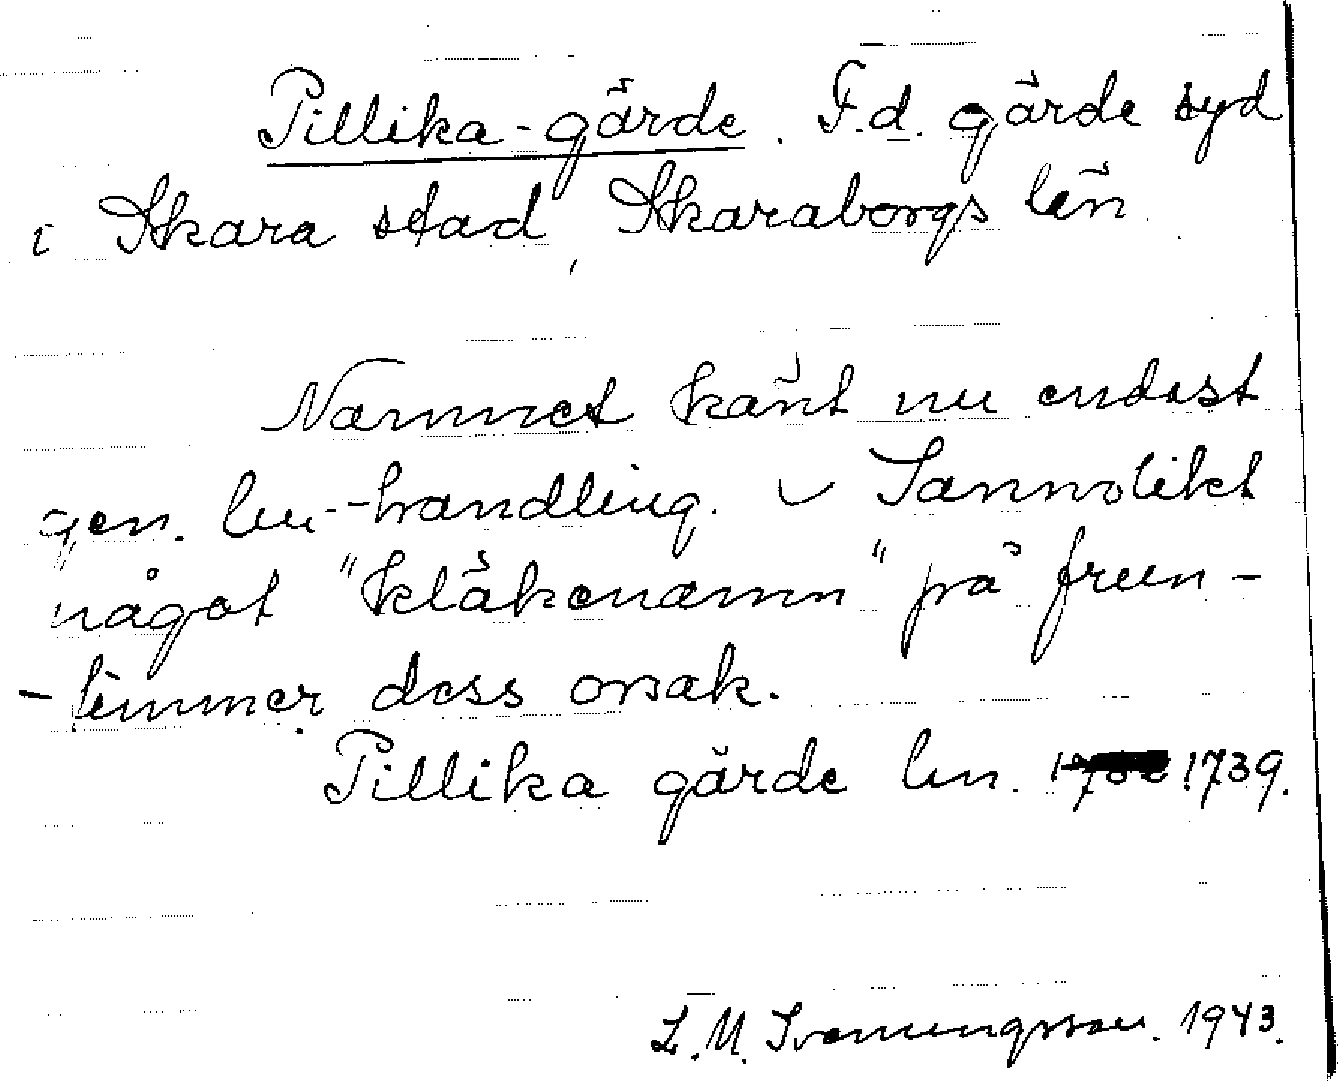 Pillika-gärde. F.d. gärde syd
i Skara stad, Skaraborgs län.
Namnet känt nu endast
gen. lm-handling. Sannolikt
något "kläkenamn" på fruen-
-timmer dess orsak.
Pillika gärde lm. 1739.
L.M. Svenungsson. 1943.